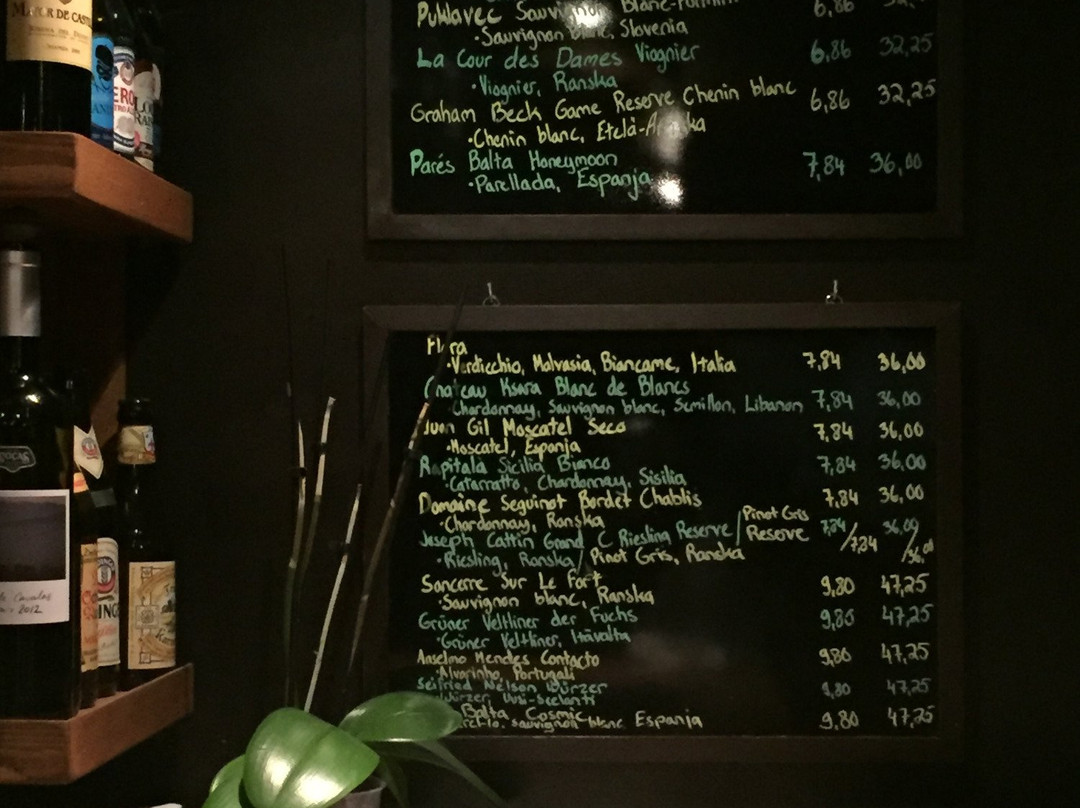 MAYOR DE CASTI
Puklavec Sauvignon Blanc-Furmint 6,86
•Sauvignon Blanc, Slovenia
La Cour des Dames Viognier 6,86 32,25
•Viognier, Ranska
Graham Beck Game Reserve Chenin blanc 6,86 32,25
•Chenin blanc, Etelä-
Parés Balta Honeymoon 7,84 36,00
•Parellada, Espanja
•Verdicchio, Malvasia, Biancame, Italia 7,84 36,00
Chateau Ksara Blanc de Blancs
Chardonnay, Sauvignon blanc, Semillon, Libanon 7,84 36,00
Juan Gil Moscatel Seco 7,84 36,00
•Moscatel, Espanja
Rapitalà Sicilia Bianco 7,84 36,00
•Catarratto, Chardonnay, Sisilia
Domaine Seguinot Bordet Chablis 7,84 36,00
•Chardonnay, Ranska
Joseph Cattin Grand C Riesling Reserve / Pinot Gris Reserve 7,84 / 7,84 36,00 / 36,00
•Riesling, Ranska / Pinot Gris, Ranska
Sancerre Sur Le Fort 9,80 47,25
•Sauvignon blanc, Ranska
Grüner Veltliner der Fuchs 9,80 47,25
•Grüner Veltliner, Itävalta
Anselmo Mendes Contacto 9,80 47,25
•Alvarinho, Portugali
Seifried Nelson Würzer 9,80 47,25
Würzer, Uusi-Seelanti
Balta Cosmic 9,80 47,25
sauvignon blanc Espanja
2012